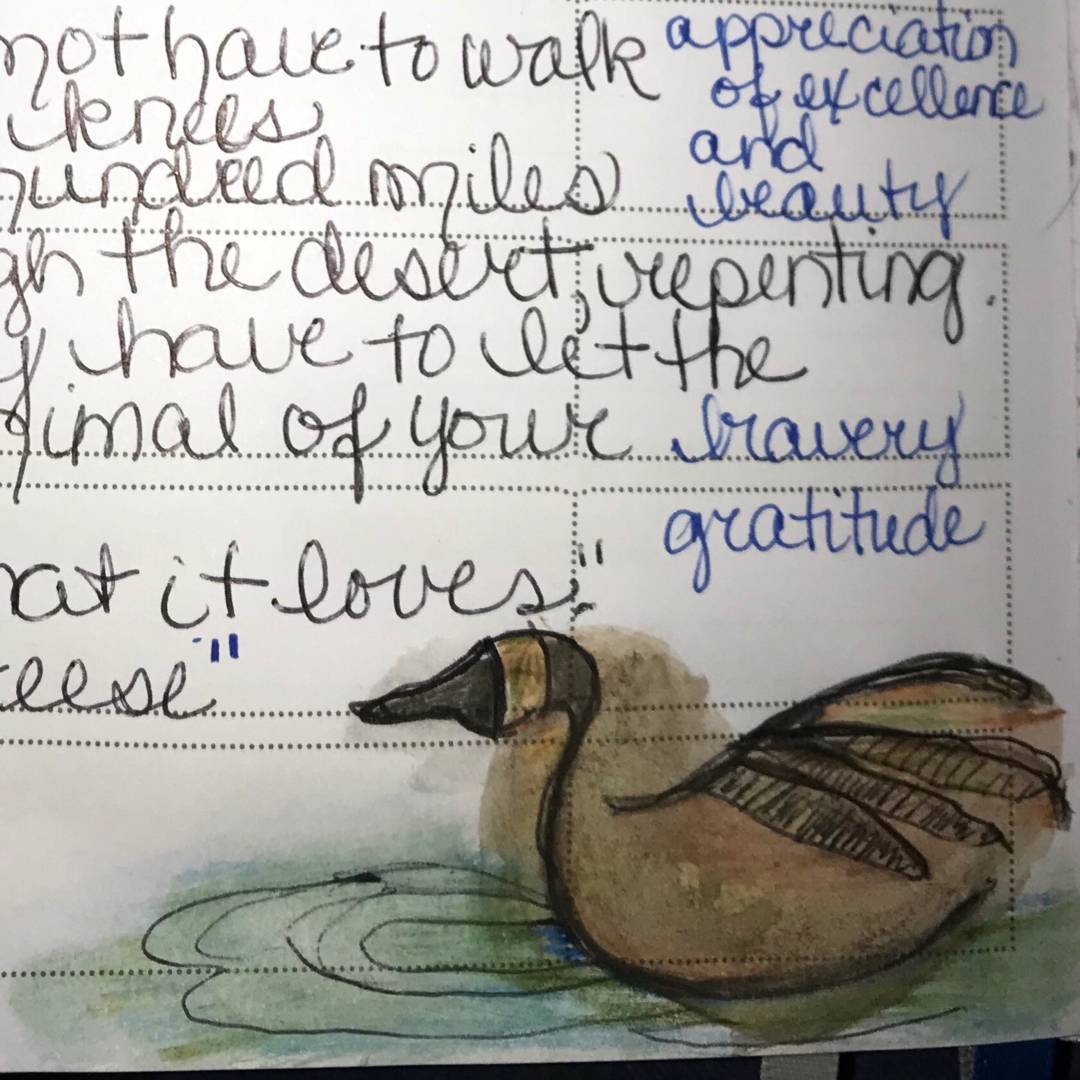 not have to walk appreciation
knees of excellence
hundred miles and
gh the desert, repenting. beauty
y have to let the
nimal of your bravery
gratitude
hat it loves."
eese"